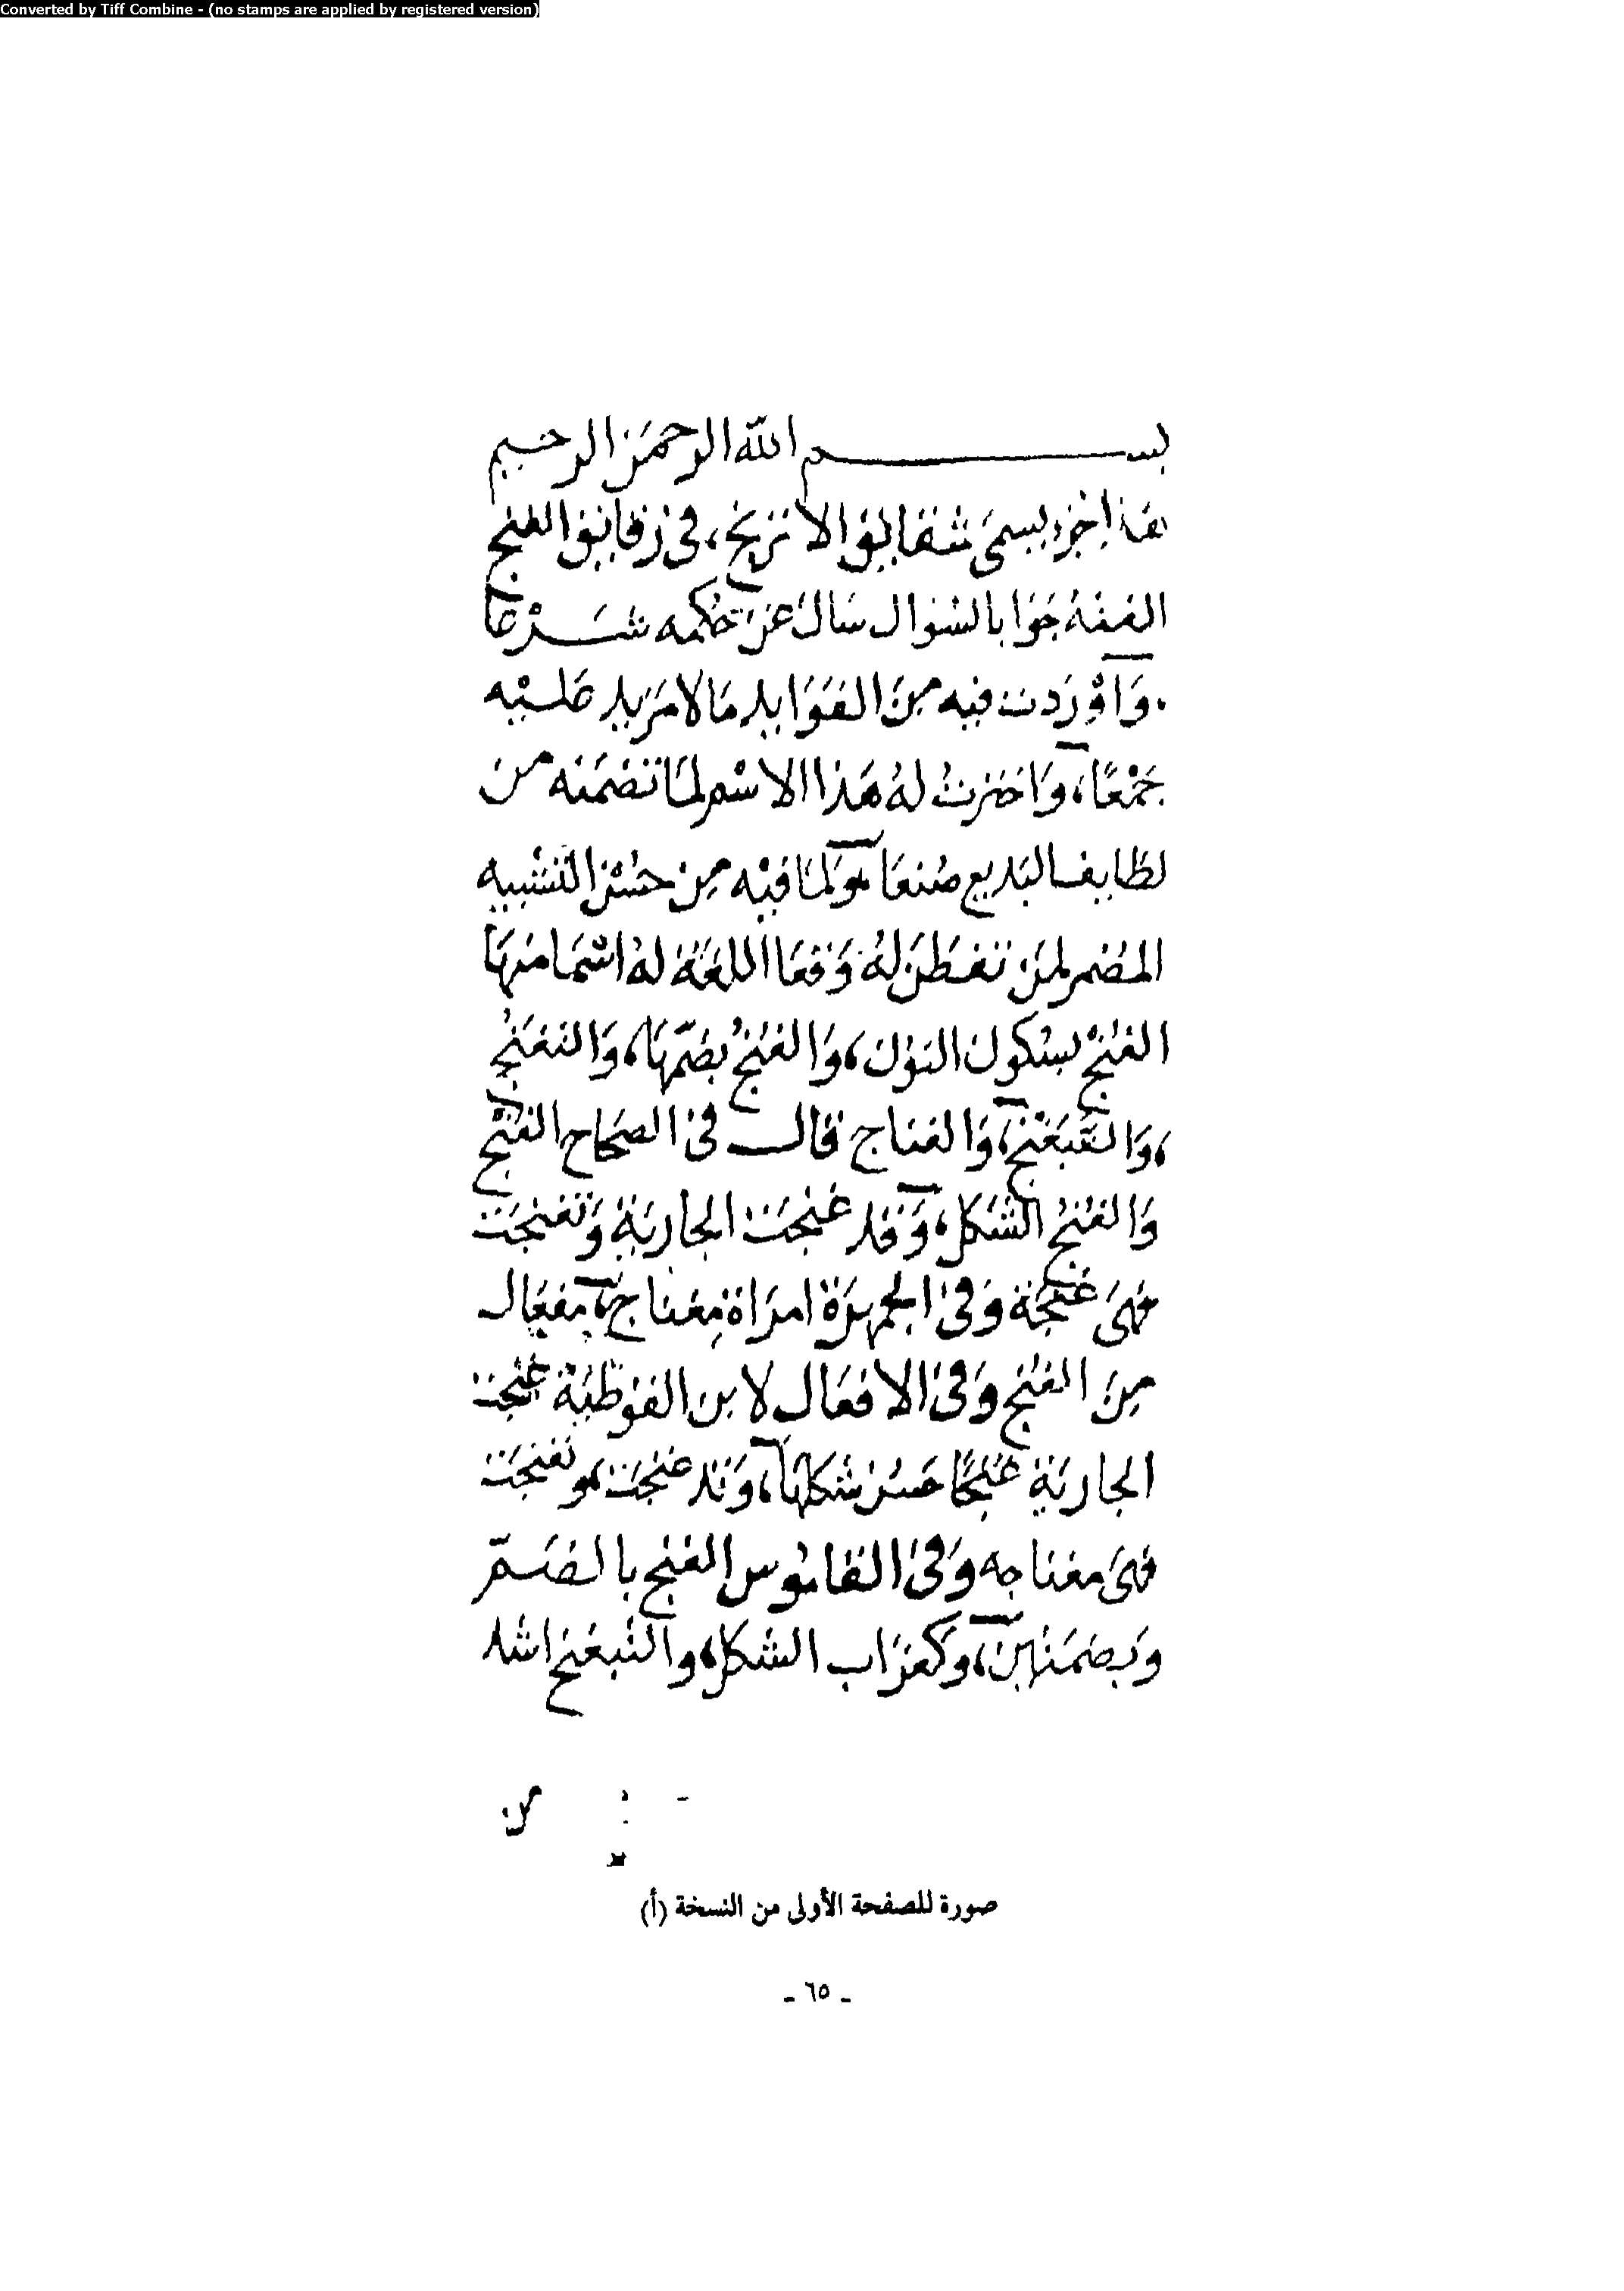 Converted by Tiff Combine - (no stamps are applied by registered version)
بسم الله الرحمن الرحيم
هذا جزء يسمى شقايق الاترنج، في رقايق الغنج
الفته جوابا لسؤال سال عن حكمه شرعا
وَاوْرَدت فيه مِنَ الفوَايد مَا لا مَزيد عليْه
جَمْعًا، وَاخترتُ لهُ هَذا الاسْم لمَا تضمَنه من
لطَايف البَديع صُنعَا، وَلمَا فيْه مِن حسْن التشبيه
المضمر لمَن تفطَن لهُ وَقعَا اللغَة لهُ اسْمَا منهَا
الغنْج بسكون النوْن، وَالغنُج بضمّهَا، وَالتغنج
، وَالتبغنج، وَالغناج قال في الصحَاح الغنْج
وَالغنُج الشكل، وَقد غنجَت الجاريَة وَتغنجَت
فهىَ غنجَة وَفي الجمهرَة امرَاة مِغناج، مفعَال
مِنَ الغنج وَفي الافعَال لابن القوْطيَة غنجت
الجاريَة غنجًا حسُن شكلهَا، وَقد غنجَت، وتغنجَت
فهىَ مغناجه وَفي القاموُس الغنج بالضَم
وَبضمَتين، وَكغرَاب الشكل، والتبغنج اشد
من
صورة للصفحة الأولى من النسخة (أ)
- ٦٥ -